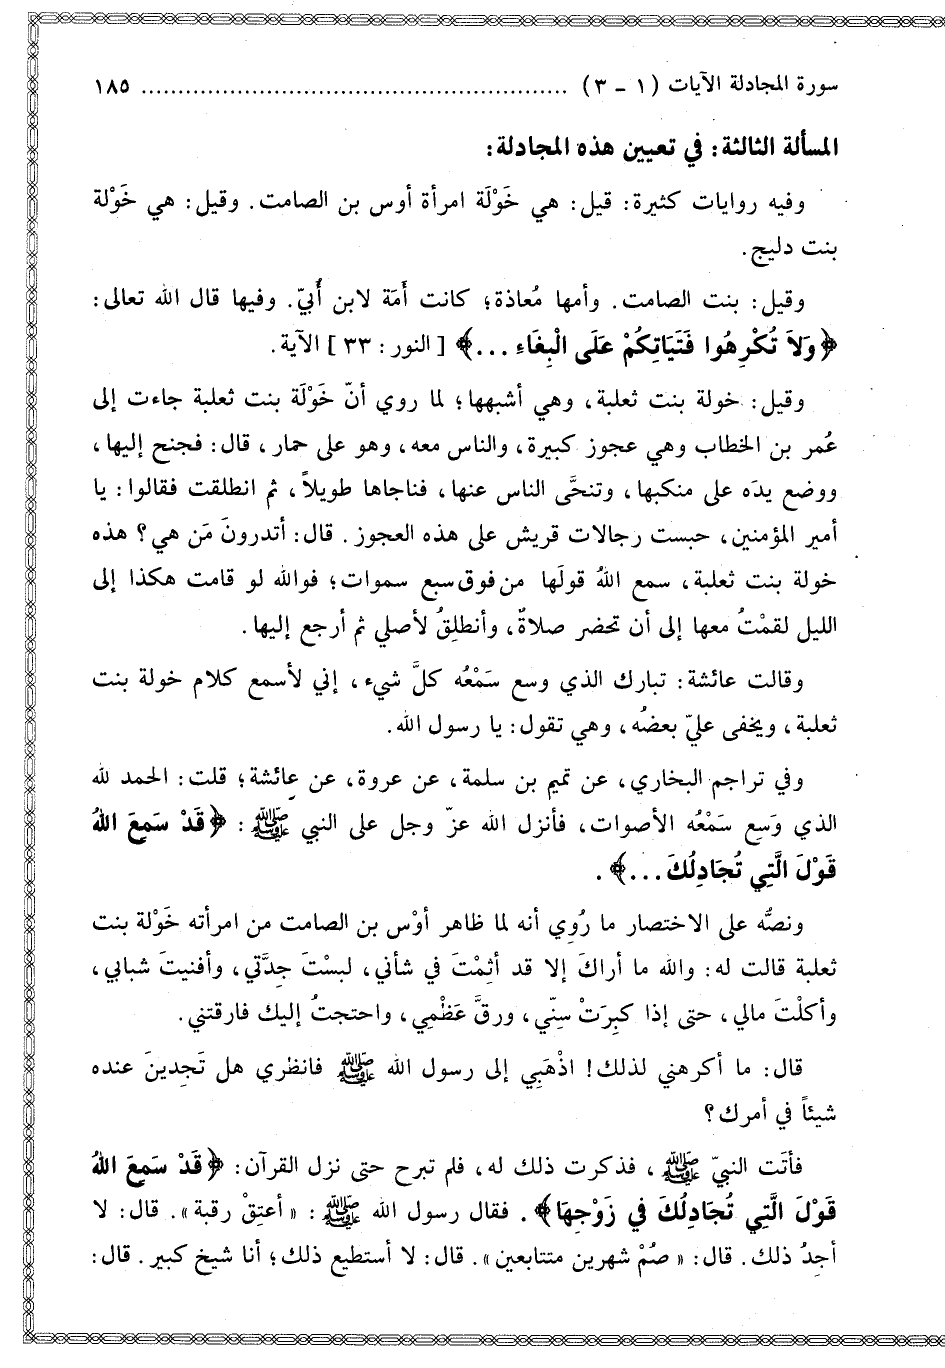 سورة المجادلة الآيات ( ١ - ٣ ) ........................................................... ١٨٥
المسألة الثالثة: في تعيين هذه المجادلة:
وفيه روايات كثيرة: قيل: هي خَوْلَة امرأة أوس بن الصامت. وقيل: هي خَوْلة
بنت دليج.
وقيل: بنت الصامت. وأمها مُعاذة؛ كانت أَمَة لابن أُبيّ. وفيها قال الله تعالى:
﴿وَلاَ تُكْرِهُوا فَتَيَاتِكُمْ عَلَى الْبِغَاءِ ...﴾ [ النور : ٣٣ ] الآية.
وقيل: خولة بنت ثعلبة، وهي أشبهها؛ لما روي أنّ خَوْلَة بنت ثعلبة جاءت إلى
عُمر بن الخطاب وهي عجوز كبيرة، والناس معه، وهو على حمار، قال: فجنح إليها،
ووضع يدَه على منكبها، وتنحَّى الناس عنها، فناجاها طويلاً، ثم انطلقت فقالوا: يا
أمير المؤمنين، حبست رجالات قريش على هذه العجوز. قال: أتدرونَ مَن هي؟ هذه
خولة بنت ثعلبة، سمع اللهُ قولَها من فوق سبع سموات؛ فوالله لو قامت هكذا إلى
الليل لقمْتُ معها إلى أن تحضر صلاةٌ، وأنطلِقُ لأصلي ثم أرجع إليها.
وقالت عائشة: تبارك الذي وسع سَمْعُه كلَّ شيء، إني لأسمع كلام خولة بنت
ثعلبة، ويخفى عليّ بعضُه، وهي تقول: يا رسول الله.
وفي تراجم البخاري، عن تميم بن سلمة، عن عروة، عن عائشة؛ قلت: الحمد لله
الذي وَسع سَمْعُه الأصوات، فأنزل الله عزّ وجل على النبي ﷺ : ﴿قَدْ سَمِعَ اللهُ
قَوْلَ الَّتِي تُجَادِلُكَ...﴾ .
ونصُّه على الاختصار ما رُوي أنه لما ظاهر أوْس بن الصامت من امرأته خَوْلة بنت
ثعلبة قالت له: والله ما أراكَ إلا قد أثِمْتَ في شأني، لبسْتَ جِدَّتي، وأفنيتَ شبابي،
وأكلْتَ مالي، حتى إذا كبِرَتْ سنِّي، ورقَّ عَظْمِي، واحتجتُ إليك فارقتني.
قال: ما أكرهني لذلك! اذْهَبِي إلى رسول الله ﷺ فانظري هل تَجدِينَ عنده
شيئاً في أمرك؟
فأتَت النبيّ ﷺ ، فذكرت ذلك له، فلم تبرح حتى نزل القرآن: ﴿قَدْ سَمِعَ اللهُ
قَوْلَ الَّتِي تُجَادِلُكَ فِي زَوْجِهَا﴾ . فقال رسول الله ﷺ : « أعتِقْ رقبة ». قال: لا
أجدُ ذلك. قال: « صُمْ شهرين متتابعين ». قال: لا أستطيع ذلك؛ أنا شيخ كبير. قال: